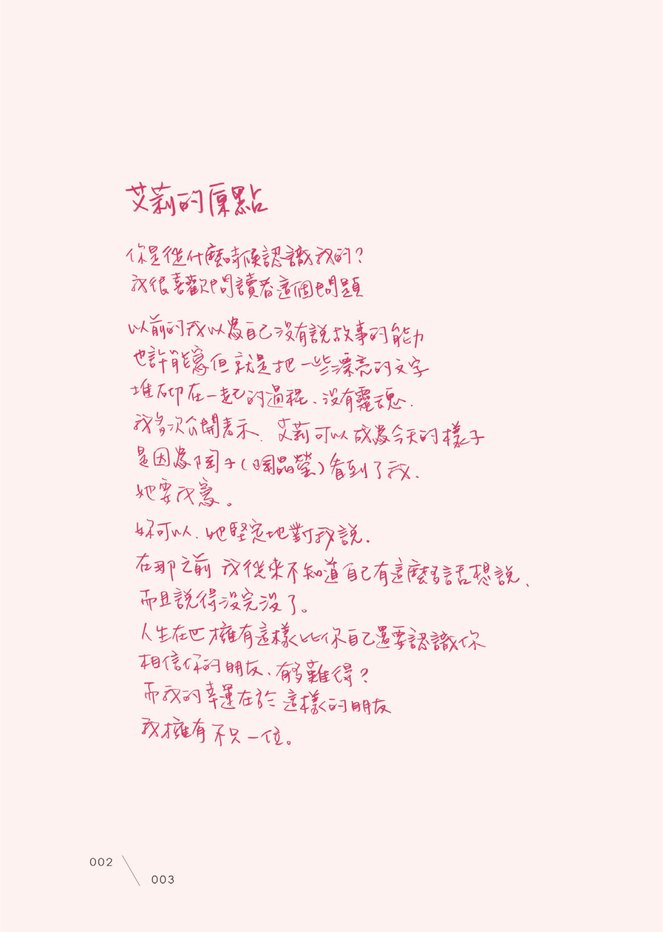 艾莉的原點
你是從什麼時候認識我的？
我很喜歡問讀者這個問題
以前的我以為自己沒有說故事的能力
也許能寫但就是把一些漂亮的文字
堆砌在一起的過程、沒有靈魂．
我多次公開表示．艾莉可以成為今天的樣子
是因為陶子(陶晶瑩)看到了我、
她要我寫。
妳可以、她堅定地對我說．
在那之前 我從來不知道自己有這麼多話想說、
而且說得沒完沒了。
人生在世擁有這樣比你自己還要認識你
相信你的朋友、有多難得？
而我的幸運在於 這樣的朋友
我擁有不只一位。
002
003